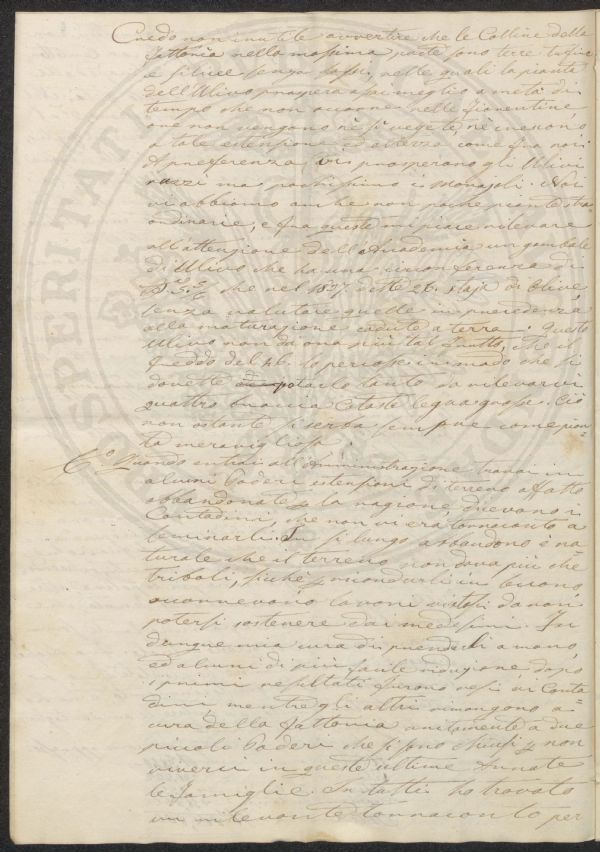 Credo non inutile avvertire che le Colline della
Fattoria nella massima parte sono terre tufine
e silicee senza sassi, nelle quali la pianta
dell'Ulivo prospera assai meglio a metà di
tempo che non occorre nelle fiorentine,
ove non vengono nè sì vegete, nè crescono
a tale estensione ed altezza come fra noi.
A preferenza vi prosperano gli Ulivi
razzi ma pochissimo i Morajoli. Noi
vi abbiamo anche non poche piante stra=
ordinarie, e fra queste mi piace rilevare
all'attenzione dell'Accademia un gambale
di Ulivo che ha una circonferenza di
che nel 1827 dette 26. staja di Olive
senza valutare quelle in precedenza
alla maturazione cadute a terra. Questo
Ulivo non dà ora più tal frutto, che il
freddo del 46. lo percosse in modo che si
dovette potarlo tanto da rilevarvi
quattro braccia Cataste legna grosse. Ciò
non ostante si serba sempre come pian=
ta meravigliosa.
6.o Quando entrai all'Amministrazione trovai in
alcuni Poderi estensioni di terreno affatto
abbandonate p la ragione, dicevano i
Contadini, che non vi era tornaconto a
seminarli. In sì lungo abbandono è na=
turale che il terreno non dava più che
triboli, sicché p ricondurli in buono
occorrevano lavori vistosi da non
potersi sostenere dai medesimi. Fu
dunque mia cura di prenderli a mano,
ed alcuni di più facile riduzione dopo
i primi resultati furono resi ai Conta
dini, mentre gli altri rimangono a
cura della Fattoria unitamente a due
piccoli Poderi che si sono chiusi p non
viverci in queste ultime Annate
le famiglie. In fatti ho trovato
un rilevante tornaconto per